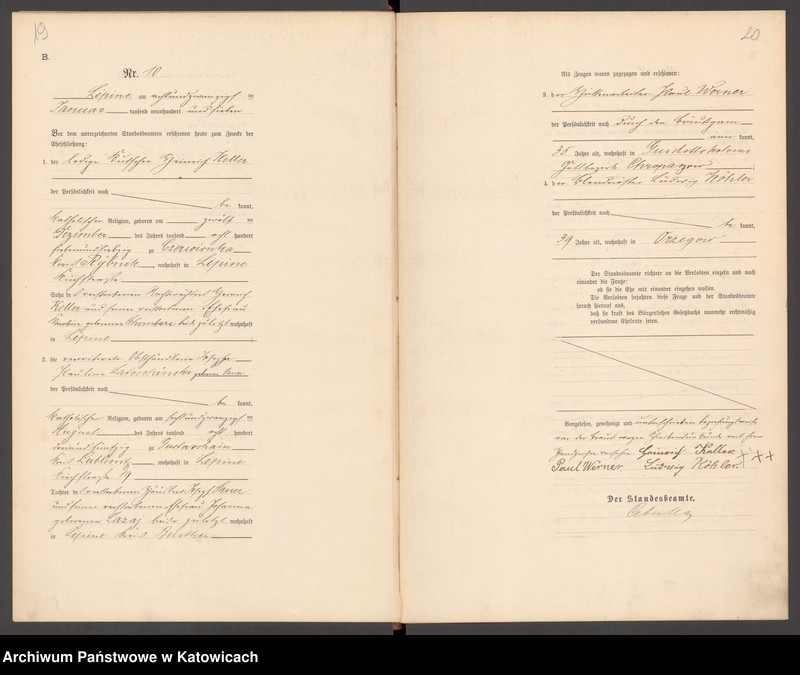 19
B.
Nr. 10
Lipine am achtundzwanzigsten
Januar tausend neunhundert und sieben
Vor dem unterzeichneten Standesbeamten erschienen heute zum Zwecke der
Eheschließung:
1. der ledige Kutscher Heinrich Keller
der Persönlichkeit nach
be kannt,
katholischer Religion, geboren am zwölf ten
Dezember des Jahres tausend acht hundert
siebenundsiebzig zu Czerwionka
Kreis Rybnik, wohnhaft in Lipine
Kirchstraße
Sohn des verstorbenen Heinrich
Keller und seiner verstorbenen Ehefrau
geborenen beide zuletzt wohnhaft
in Lipine
2. die verwitwete Josepha
Pauline geborene
der Persönlichkeit nach
be kannt,
katholischer Religion, geboren am sechsundzwanzigsten
August des Jahres tausend acht hundert
dreiundfünfzig zu
Kreis Lublinitz, wohnhaft in Lipine
Kirchstraße 9
Tochter des verstorbenen Joseph
und seiner verstorbenen Ehefrau Johanna
geborenen beide zuletzt wohnhaft
in Lipine Kreis Beuthen
20
Als Zeugen waren zugezogen und erschienen:
3. der Hüttenarbeiter Paul Werner
der Persönlichkeit nach durch den Bräutigam
aner kannt,
35 Jahre alt, wohnhaft in Guidottokolonie
Gutsbezirk Chropaczow
4. der Ludwig Köhler
der Persönlichkeit nach
be kannt,
39 Jahre alt, wohnhaft in Orzegow
Der Standesbeamte richtete an die Verlobten einzeln und nach
einander die Frage:
ob sie die Ehe mit einander eingehen wollen.
Die Verlobten bejahten diese Frage und der Standesbeamte
sprach hierauf aus,
daß sie kraft des Bürgerlichen Gesetzbuchs nunmehr rechtmäßig
verbundene Eheleute seien.
Vorgelesen, genehmigt und unterschrieben beziehungsweise
von der Braut wegen Schreibensunkunde mit ihrem
Handzeichen versehen Heinrich Keller. +++
Paul Werner Ludwig Köhler.
Der Standesbeamte.
Archiwum Państwowe w Katowicach